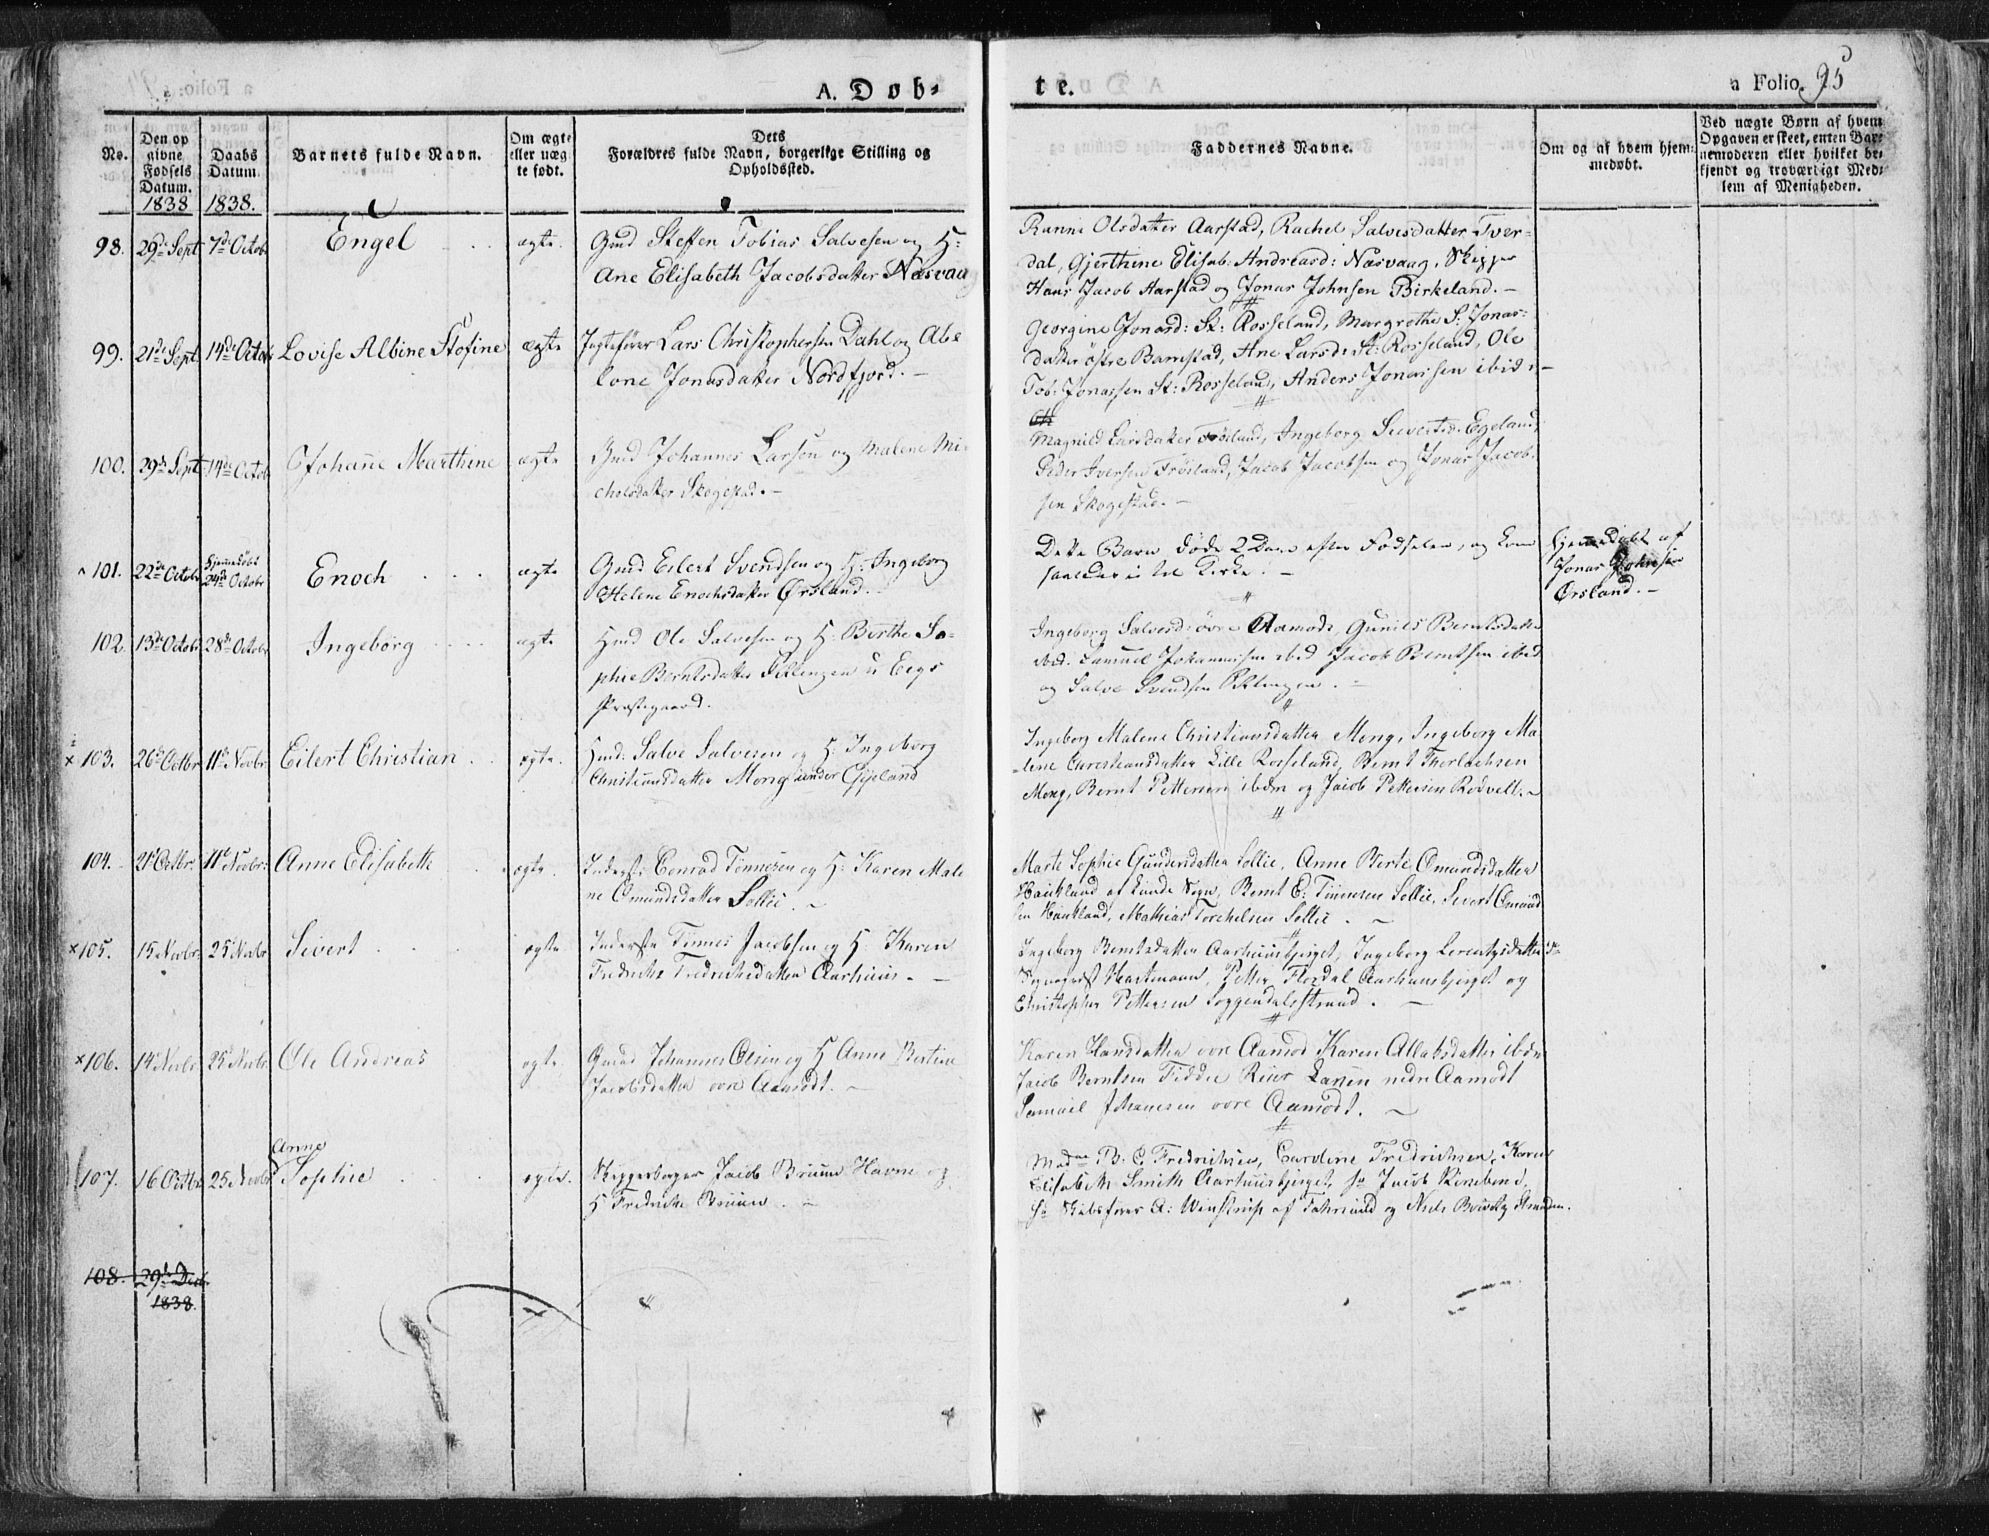 A. Døb-
te.
a Folio. 95
No.
Den op
givne
Fødsels
Datum.
1838
Daabs
Datum.
1838.
Barnets fulde Navn.
Om ægte
eller uæg
te født.
Dets
Forældres fulde Navn, borgerlige Stilling og
Opholdssted.
Faddernes Navne.
Om og af hvem hjem-
medøbt.
Ved uægte Børn af hvem
Opgaven er skeet, enten Bar-
nemoderen eller hvilket be-
kjendt og troværdigt Med-
lem af Menigheden.
98. 29de Sept 7de Octob Engel ægte. Gmd Steffen Tobias Salvesen og H:
Ane Elisabeth Jacobsdatter Næsvaag
Ranni Olsdatter Aarstad, Rachel Salvesdatter Tver-
dal, Gjerthine Elisab. Andreasd: Næsvaag, Skipper
Hans Jacob Aarstad og Jonas Johnsen Birkeland. -
99. 21de Sept 14de Octob Lovise Albine Stofine ægte Jegtefører Lars Christophersen Dahl og Abe
lone Jonasdatter Nordfjord. -
Georgine Jonasd: St: Rosseland, Margrethe S. Jonas-
datter østre Barrestad, Ane Larsd: St: Rosseland, Ole
Tob: Jonassen St: Rosseland, Anders Jonassen ibid: -
100. 29de Sept 14de Octob Johane Marthine ægte Gmd Johannes Larsen og Malene Mi-
chelsdatter Skogestad. -
Magnild Larsdatter Frøisland, Ingeborg Sivertsd. Egeland,
Peder Iversen Frøisland, Jacob Jacobsen og Jonas Jacob-
sen Skogestad. -
101. 22de Octob Hjemmedøbt
24de Octobr Enoch ægte Gmd Eilert Svendsen og H: Ingeborg
Helene Enochsdatter Ørsland. -
Dette Barn døde 2 Dage efter Fødselen, og kom
saaledes ei til Kirke. -
Hjemmedøbt af
Jonas Johnsen
Ørsland. -
102. 13de Octob 28de Octobr Ingeborg ægte Hmd Ole Salvesen og H: Berthe So-
phie Berntsdatter Eitlingen u Eegs
Præstegaard.
Ingeborg Salvesd: øvre Aamodt, Gunild Berntsdatter
ibid. Samuel Johannesen ibid Jacob Berntsen ibid
og Salve Svendsen Eitlingen. -
× 103. 26de Octbr 11te Novbr Eilert Christian ægte. Hmd. Salve Salvesen og H: Ingeborg
Christiansdatter Mong under
Ingeborg Malene Christiansdatter Mong, Ingeborg Ma
lene Christiansdatter Lille Rosseland, Bernt Thorlachsen
Mong, Bernt Pettersen ibdm og Jacob Pettersen Rodvelt. -
104. 21 Octbr. 11te Novbr: Anne Elisabeth ægte. Inderste Conrad Tønnesen og H: Karen Male
ne Omundsdatter Sollie. -
Marte Sophie Gundersdatter Sollie, Anne Berte Omundsdatter
Haukland af Lunde Sogn, Bernt E: Tønnesen Sollie, Sivert Omund
sen Haukland, Mathias Torchelsen Sollie. -
× 105. 15 Novbr. 25 Novbr Sivert ægte Inderste Tønnes Jacobsen og H. Karen
Fredrikke Fredriksdatter Aarhuus. -
Ingeborg Berntsdatter Aarhuusbjerget, Ingeborg Lorentzdatter
Hartmann, Petter Flordal Aarhuusbjerget og
Christopher Pettersen Soggendalsstrand. -
× 106. 14 Novbr 25 Novbr. Ole Andreas ægte Gmd Johannes Olsen og H Anne Bertine
Jacobsdatter ovre Aamodt. -
Karen Hansdatter ovre Aamod Karen Ollabsdatter ibdm
Jacob Berntsen Fidde Larsen nedre Aamodt
Samuel Johanesen ovre Aamodt. -
107. 16 Octbr 25 Novbr Anne
Sophie ægte. Skipperborger Jacob Bruun Havne og
H Fredrike Bruun. -
Made B. C. Fredrichsen, Caroline Fredrichsen, Karen
Elisabeth Smith Aarhuusbjerget, Sr Jacob
Sr Skibsfører A: Winstrup af Fahrsund og Niels Stranden.
108. 29de Decb.
1838.